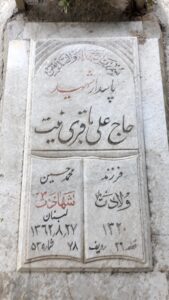 پاسدار شهید
حاج علی باقری نیت
فرزند محمد حسین
ولادت ۱۳۲۰ شهادت
لبنان ۱۳۶۲,۸,۲۷
قطعه ۲۶ ردیف ۷۸ شماره ۵۳